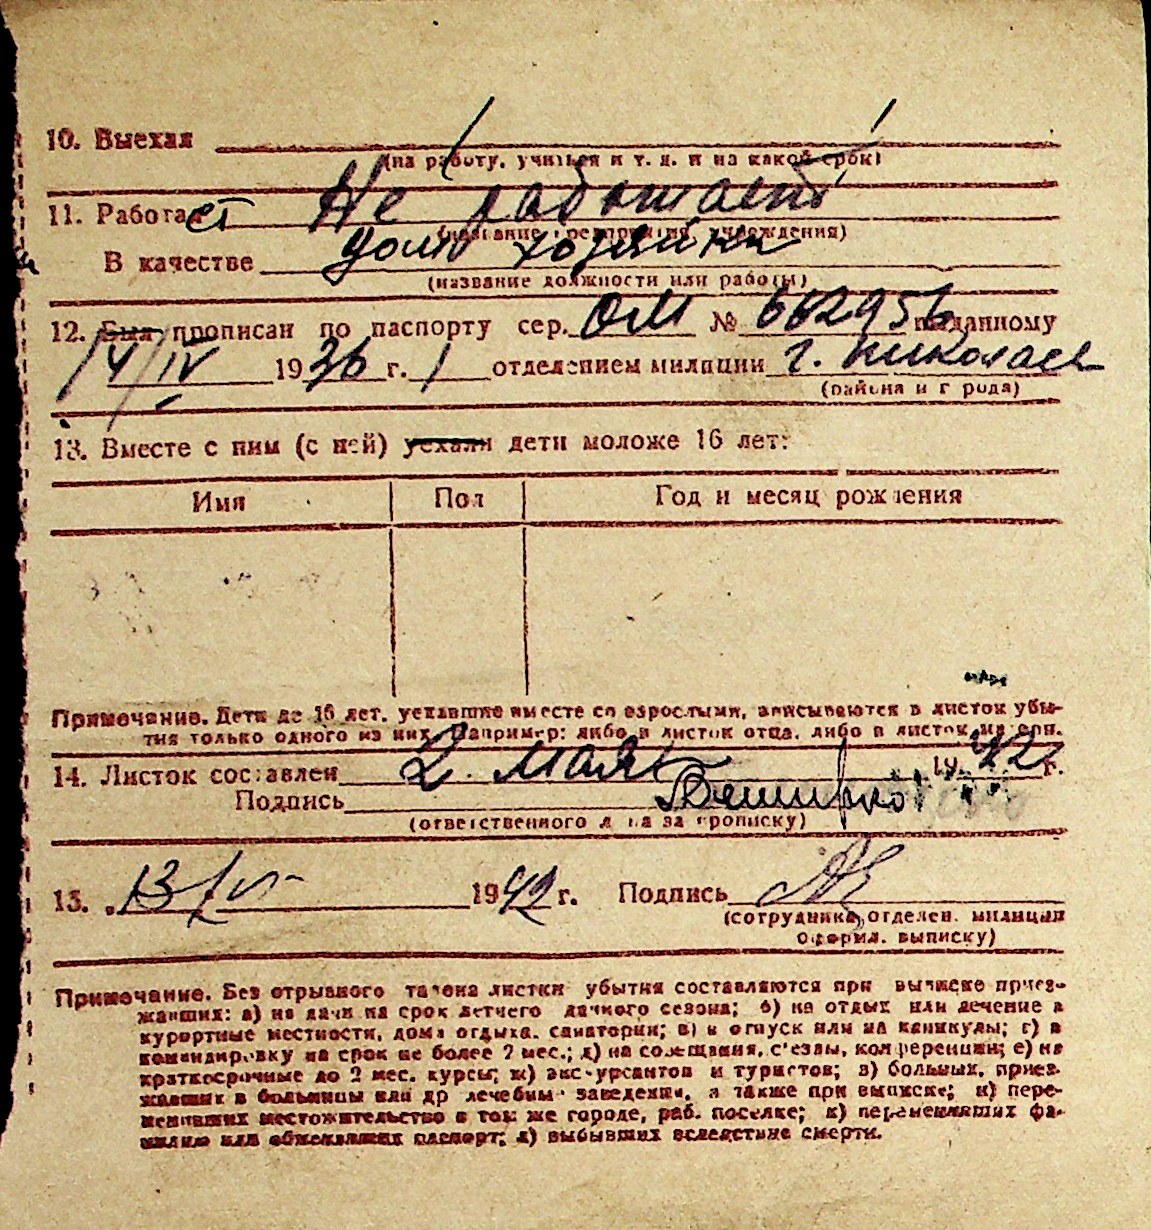 10. Выехал
(на работу, учиться и т. д. и на какой срок)
11. Работает Не работает
(название предприятия, учреждения)
В качестве домохозяйка
(название должности или работы)
12. Был прописан по паспорту сер. ОМ № 662956 выданному
14/IV 1936 г. 1 отделением милиции г. Николаев
(района и города)
13. Вместе с ним (с ней) уехали дети моложе 16 лет:
Имя Пол Год и месяц рождения
Примечание. Дети до 16 лет, уехавшие вместе со взрослыми, вписываются в листок убы-
тия только одного из них. Например: либо в листок отца, либо в листок матери.
14. Листок составлен 2 мая 1942 г.
Подпись
(ответственного лица за прописку)
15. 13/V 1942 г. Подпись
(сотрудника отделен. милиции
оформл. выписку)
Примечание. Без отрывного талона листки убытия составляются при выписке приез-
жавших: а) на дачи на срок летнего дачного сезона; б) на отдых или лечение в
курортные местности, дома отдыха, санатории; в) в отпуск или на каникулы; г) в
командировку на срок не более 2 мес.; д) на совещания, с'езды, конференции; е) на
краткосрочные до 2 мес. курсы; ж) экскурсантов и туристов; з) больных, приез-
жавших в больницы или др лечебные заведения, а также при выписке; и) пере-
менивших местожительство в том же городе, раб. поселке; к) переменивших фа-
милию или обменявших паспорт; л) выбывших вследствие смерти.